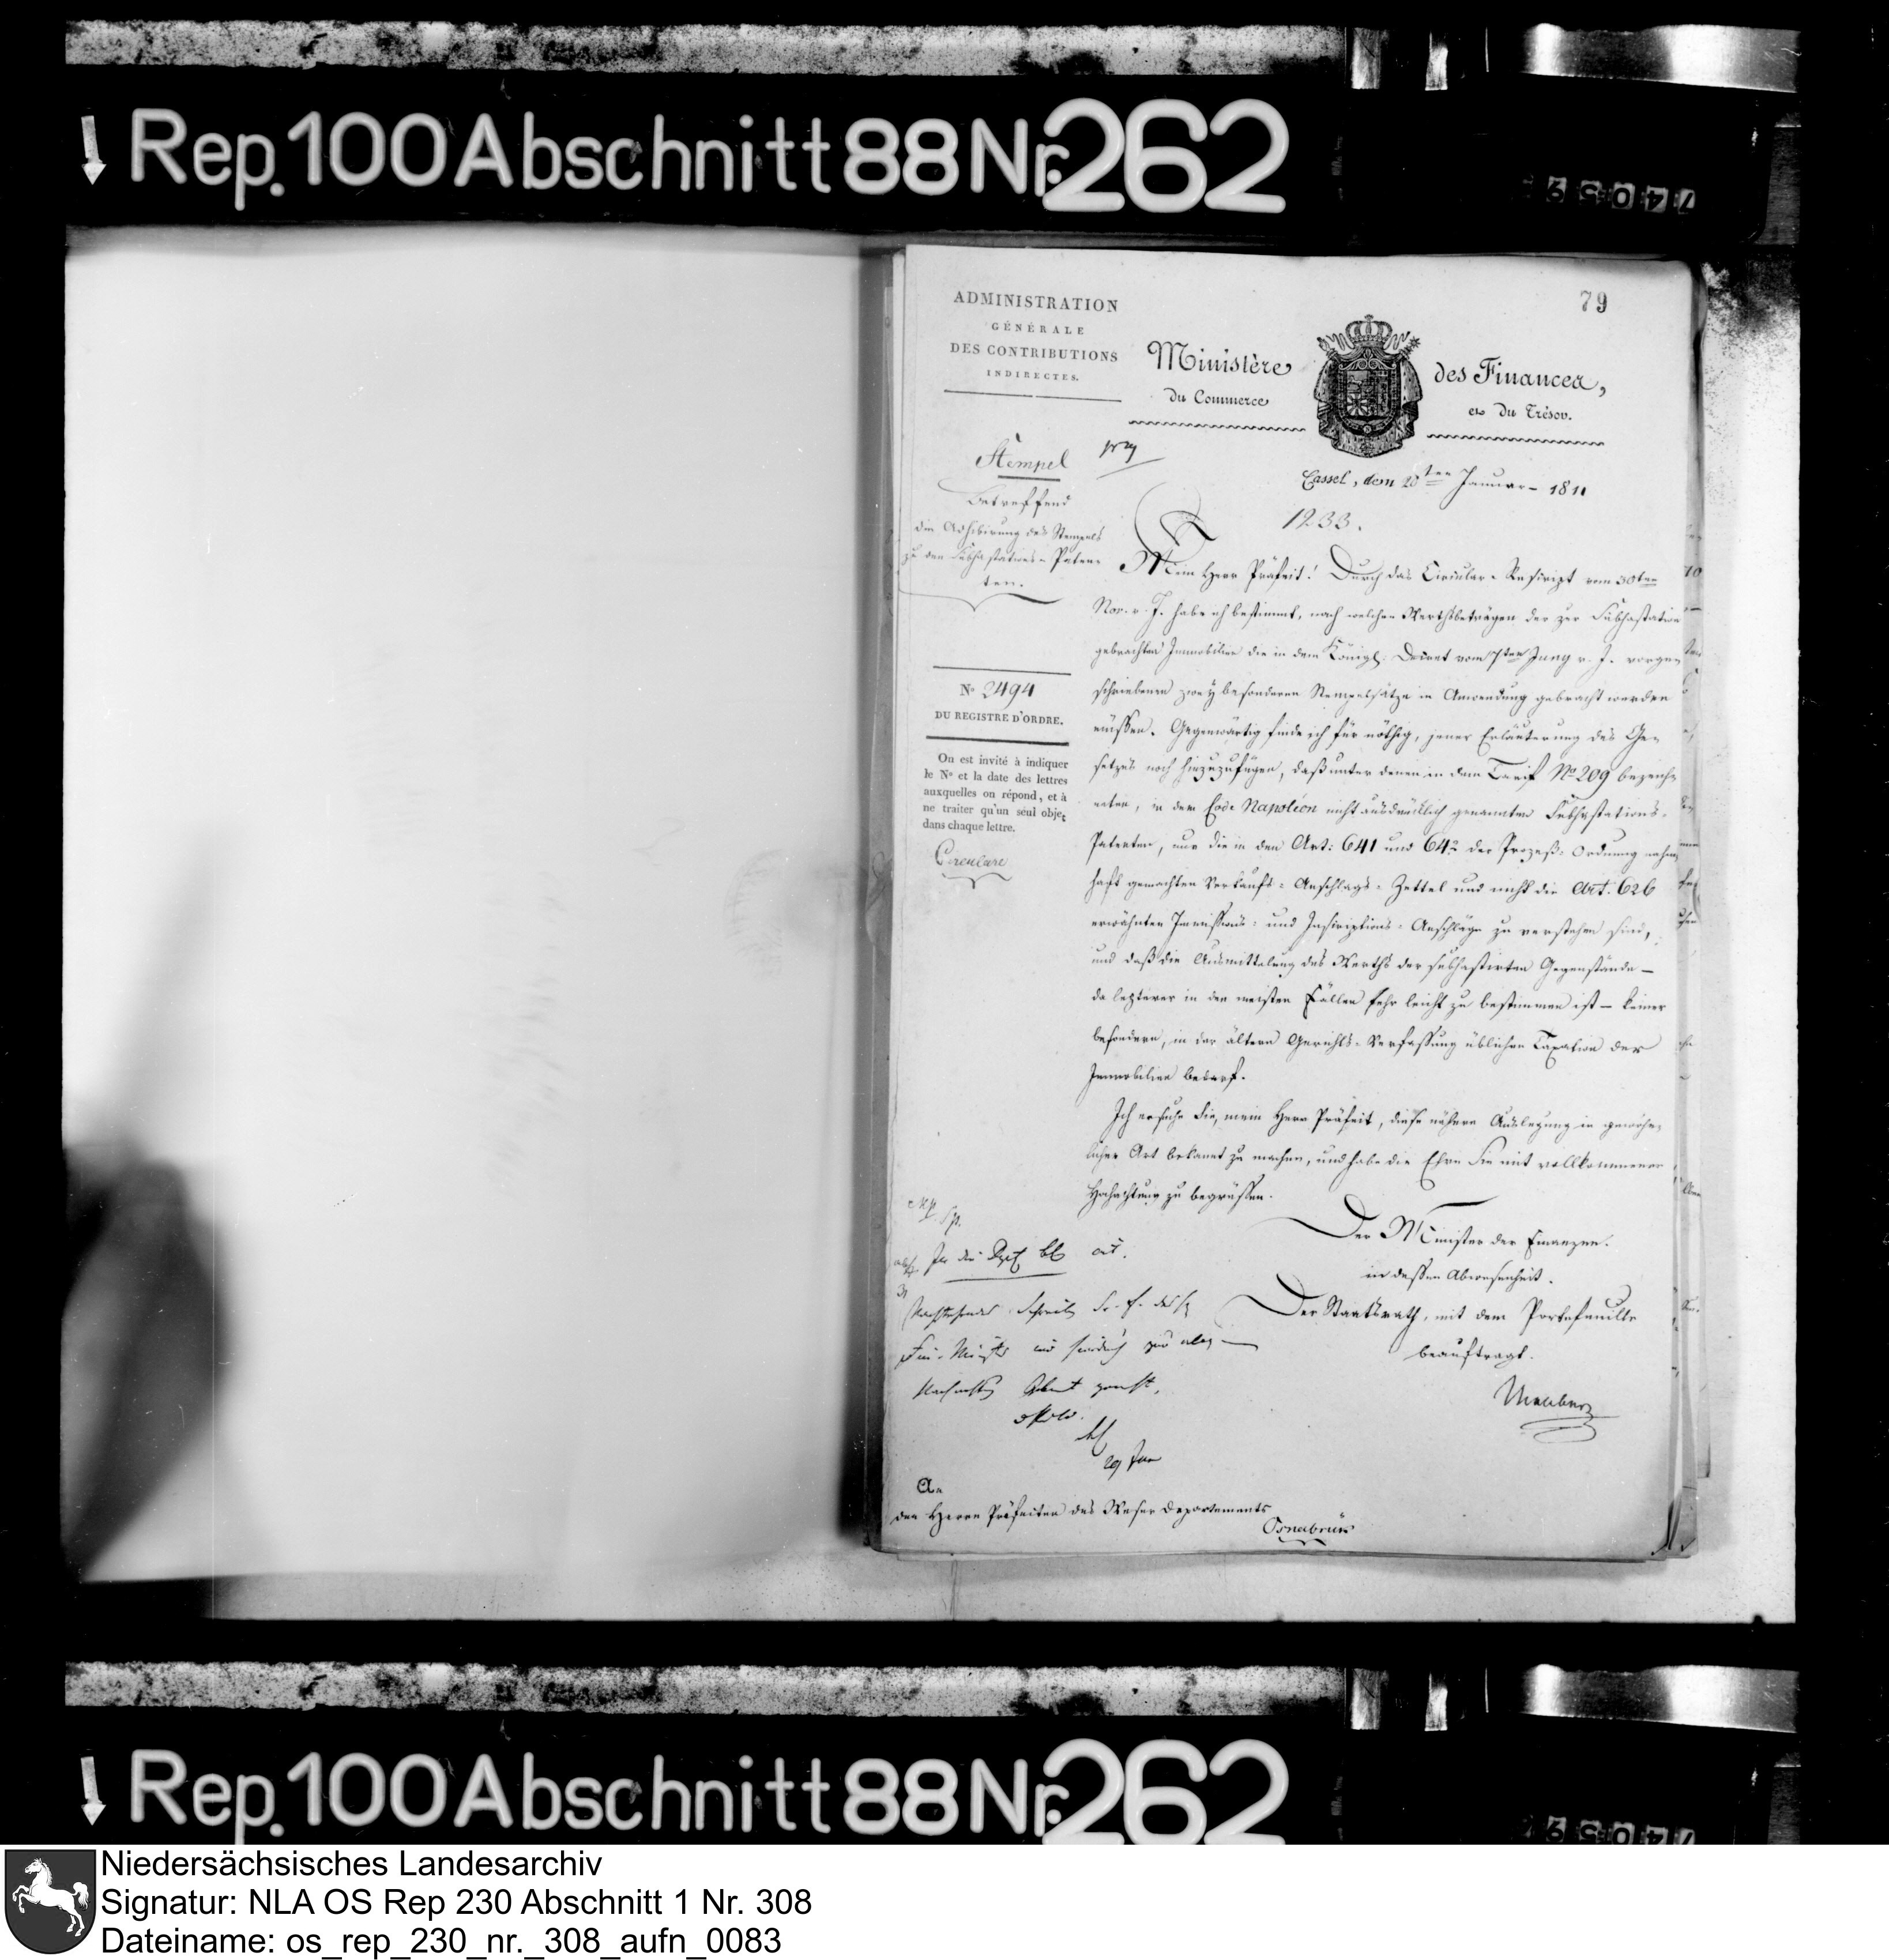 Rep. 100 Abschnitt 88 Nr. 262
74059
79
ADMINISTRATION
GÉNÉRALE
DES CONTRIBUTIONS
INDIRECTES.
Ministère des Finances,
du Commerce et du Trésor.
Stempel
Betreffend
die Adhibirung des Stempels
zu den Subhastations-Paten-
ten.
Cassel, dem 28ten Januar 1811
1233.
Mein Herr Präfect! Durch das Circular-Rescript vom 30ten
Nov. v. J. habe ich bestimmt, nach welchen Werthsbeträgen der zur Subhastation
gebrachten Immobilien die in dem Königl. Decret vom 7ten Juny v. J. vorge-
schriebenen zwey besonderen Stempelsätze in Anwendung gebracht werden
müssen. Gegenwärtig finde ich für nöthig, jener Erläuterung des Ge-
setzes noch hinzuzufügen, daß unter denen in dem Tarif No 209 bezeich-
neten, in dem Code Napoléon nicht ausdrücklich genannten Subhastations-
Patenten, nur die in den Art: 641 und 642 der Prozeß-Ordnung nahm-
haft gemachten Verkaufs-Anschlags-Zettel und nicht die Art. 626
erwähnten Immissions- und Inscriptions-Anschläge zu verstehen sind,
und daß die Ausmittelung des Werths der subhastirten Gegenstände —
da letzterer in den meisten Fällen sehr leicht zu bestimmen ist — keiner
besondern, in der ältern Gerichts-Verfassung üblichen Taxation der
Immobilien bedarf.
Ich ersuche Sie, mein Herr Präfect, diese nähere Auslegung in gewöhn-
licher Art bekannt zu machen, und habe die Ehre Sie mit vollkommener
Hochachtung zu begrüssen.
Der Minister der Finanzen.
in dessen Abwesenheit.
Der Staatsrath, mit dem Portefeuille
beauftragt.
Malchus
No 2494
DU REGISTRE D'ORDRE.
On est invité à indiquer
le No et la date des lettres
auxquelles on répond, et à
ne traiter qu'un seul objet
dans chaque lettre.
Circulare
29 Jan
An
den Herrn Präfecten des Weser Departements
Osnabrück
Rep. 100 Abschnitt 88 Nr. 262
74059
Niedersächsisches Landesarchiv
Signatur: NLA OS Rep 230 Abschnitt 1 Nr. 308
Dateiname: os_rep_230_nr._308_aufn_0083